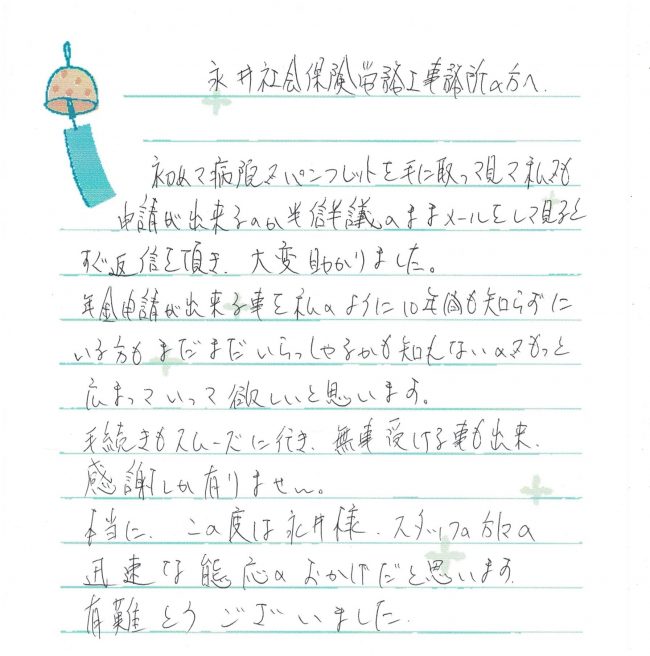 永井社会保険労務士事務所の方へ.
初めて病院でパンフレットを手に取って見て私でも
申請が出来るのか半信半議のままメールをして見ると
すぐ返信を頂き、大変助かりました。
年金申請が出来る事を私のように10年間も知らずに
いる方もまだまだいらっしゃるかも知れないのでもっと
広まっていって欲しいと思います。
手続きもスムーズに行き、無事受ける事も出来、
感謝しか有りません。
本当に、この度は永井様、スタッフの方々の
迅速な態応のおかげだと思います。
有難とうございました.